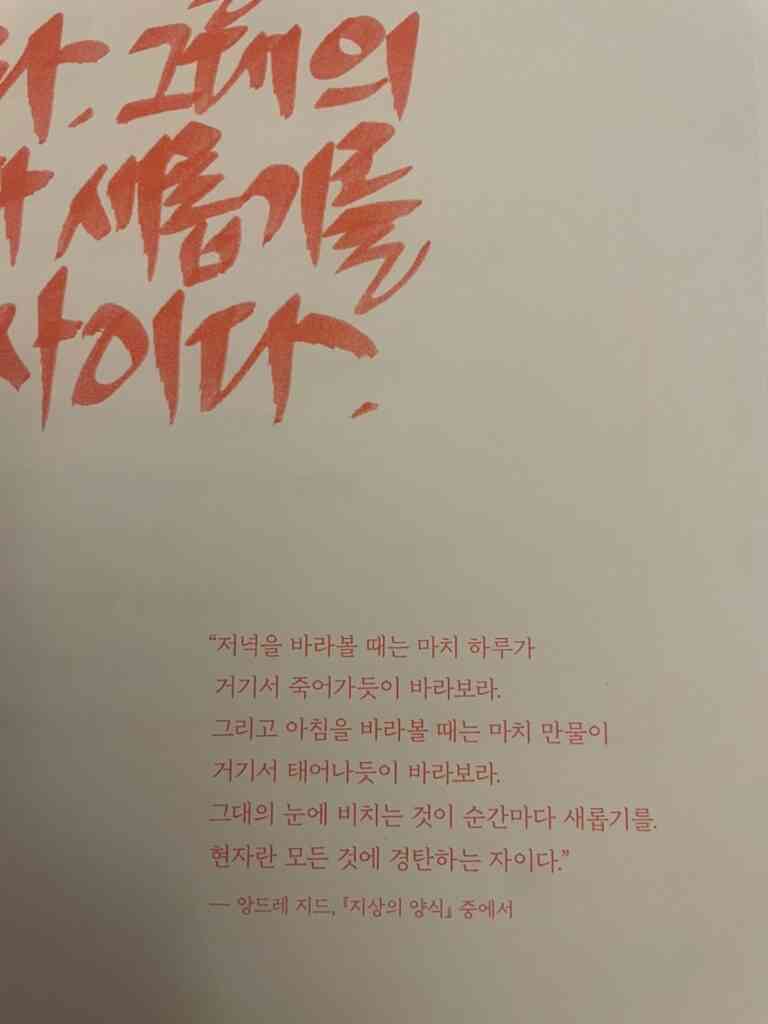 다. 그대의
새롭기를
자이다.
“저녁을 바라볼 때는 마치 하루가
거기서 죽어가듯이 바라보라.
그리고 아침을 바라볼 때는 마치 만물이
거기서 태어나듯이 바라보라.
그대의 눈에 비치는 것이 순간마다 새롭기를.
현자란 모든 것에 경탄하는 자이다.”
— 앙드레 지드, 『지상의 양식』 중에서